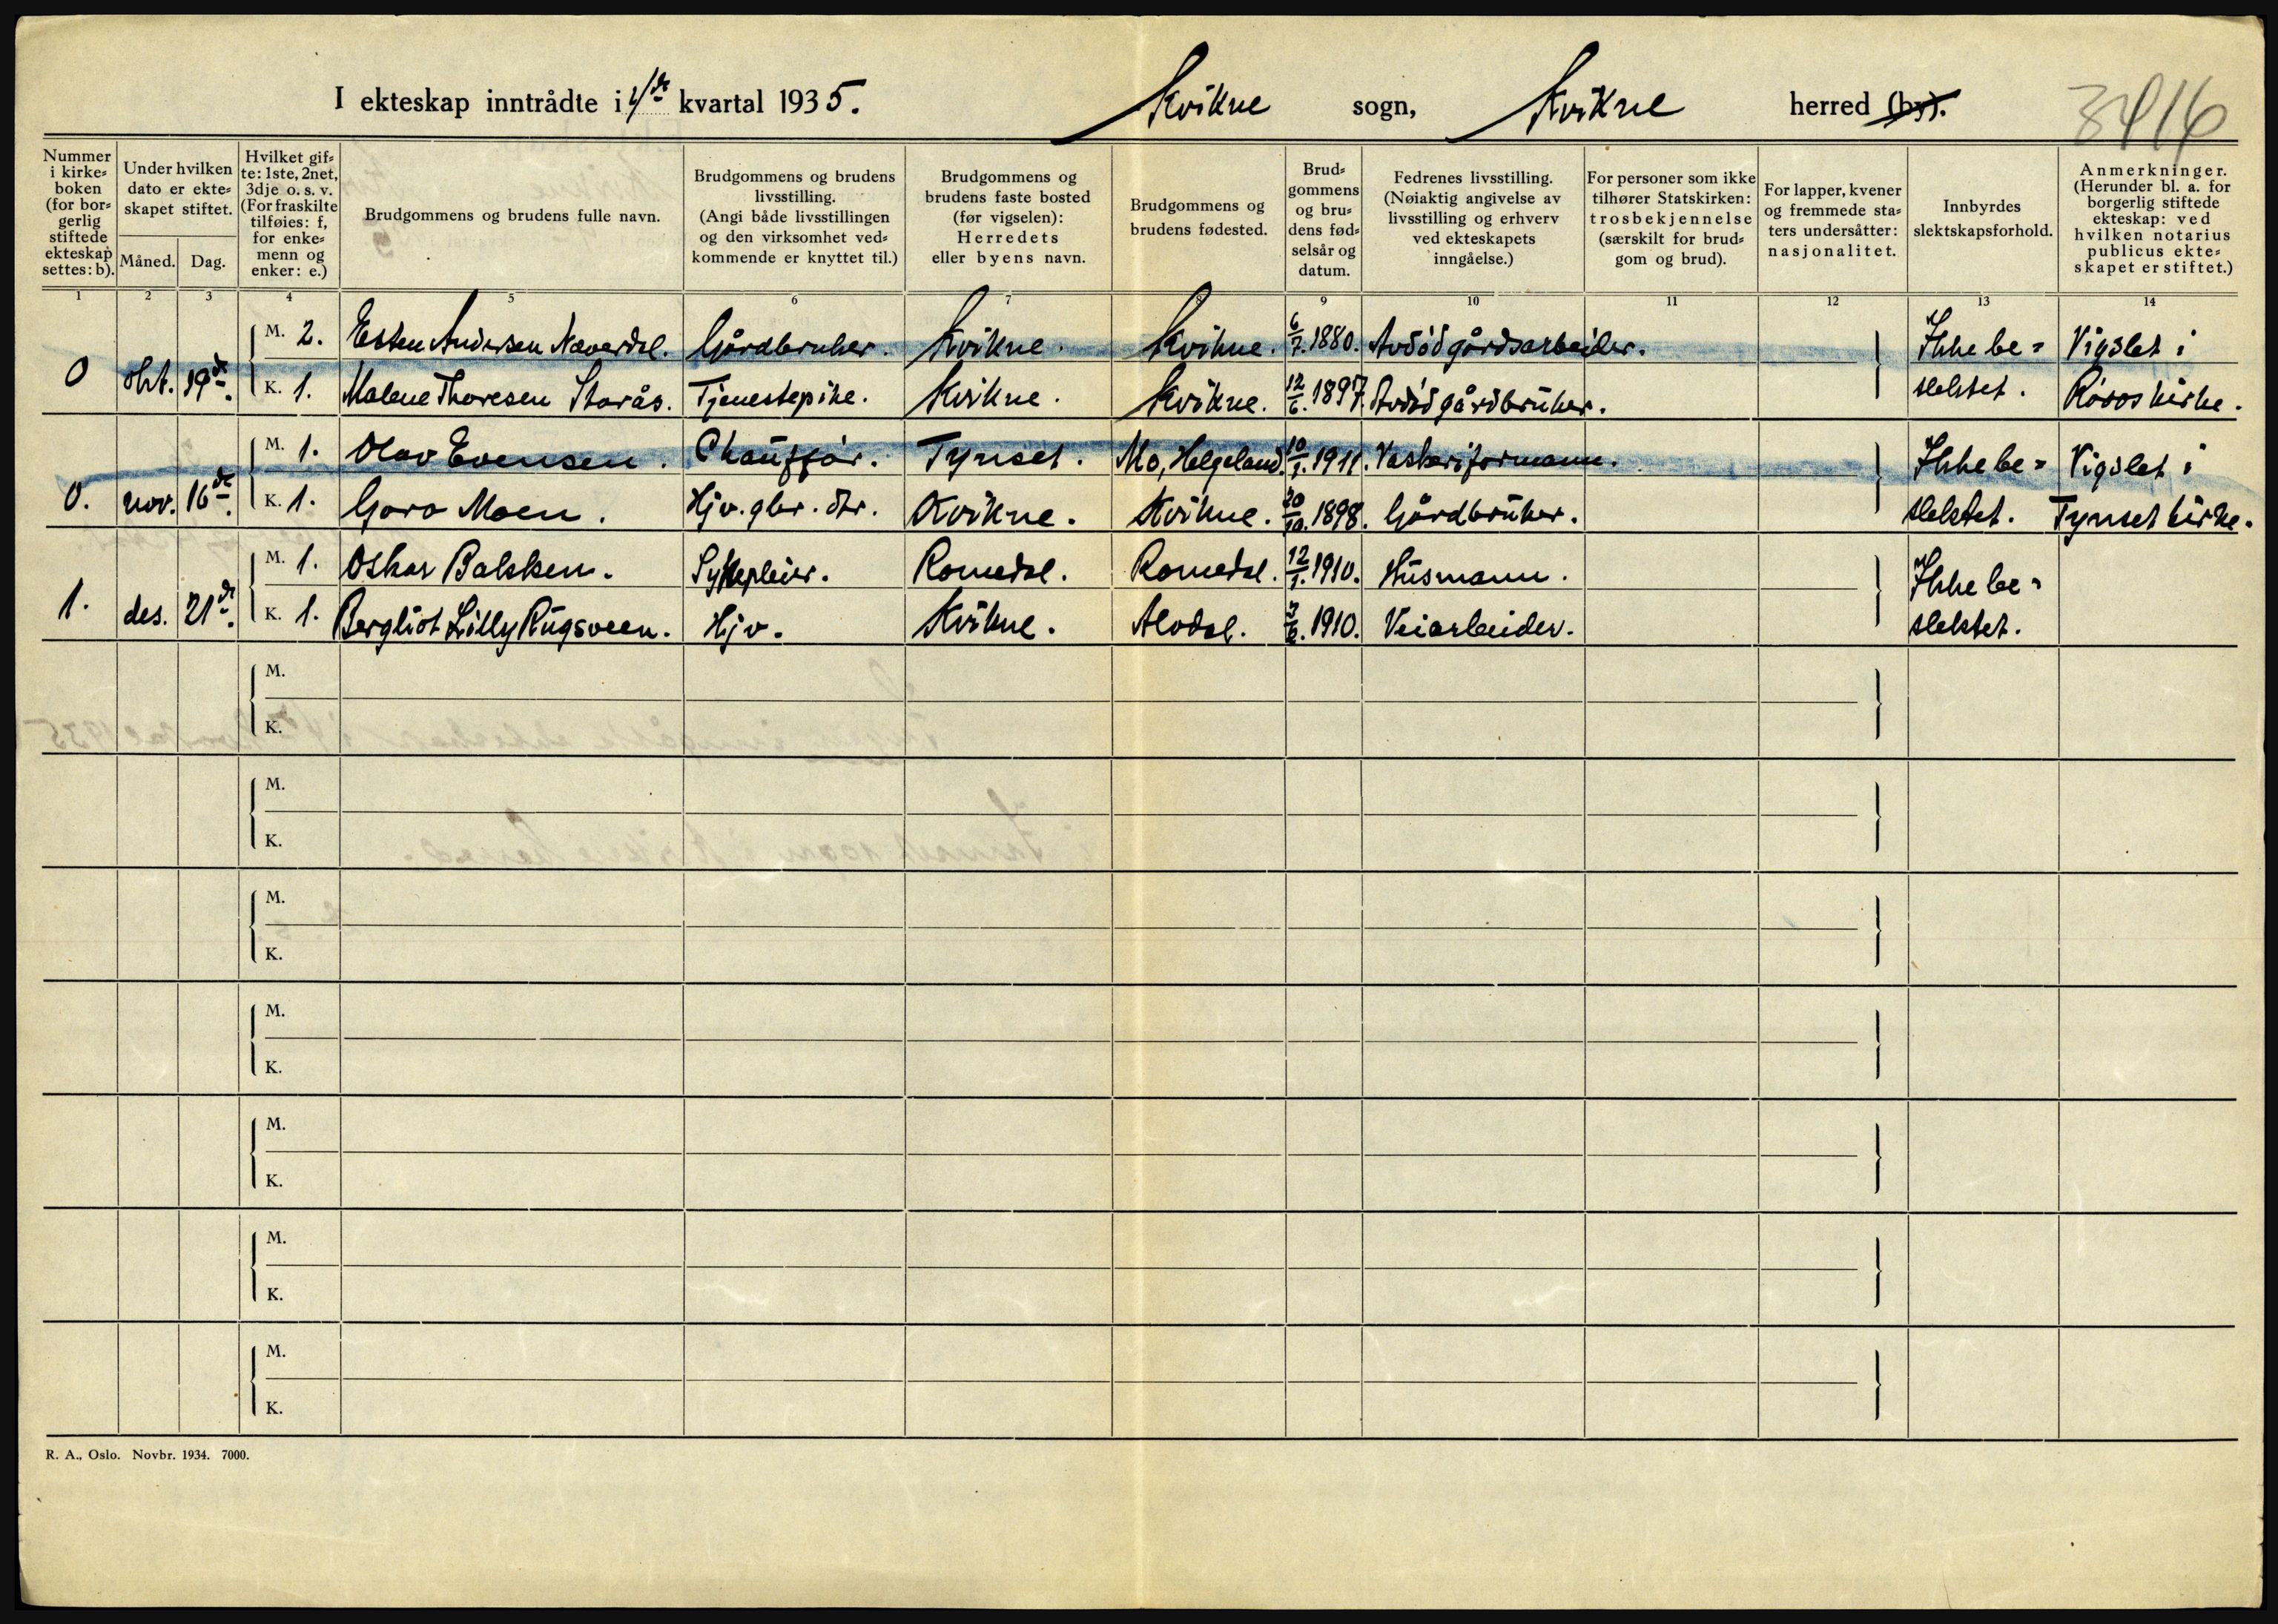 I ekteskap inntrådte i 4de kvartal 1935. Kvikne sogn, Kvikne herred (by).
3416
Nummer i kirke=boken (for bor=gerlig stiftede ekteskap settes: b).
Under hvilken dato er ekte=skapet stiftet.
Måned. Dag.
Hvilket gif=te: 1ste, 2net, 3dje o. s. v. (For fraskilte tilføies: f, for enke=menn og enker: e.)
Brudgommens og brudens fulle navn.
Brudgommens og brudens livsstilling. (Angi både livsstillingen og den virksomhet ved=kommende er knyttet til.)
Brudgommens og brudens faste bosted (før vigselen): Herredets eller byens navn.
Brudgommens og brudens fødested.
Brud=gommens og bru=dens fød=selsår og datum.
Fedrenes livsstilling. (Nøiaktig angivelse av livsstilling og erhverv ved ekteskapets inngåelse.)
For personer som ikke tilhører Statskirken: trosbekjennelse (særskilt for brud=gom og brud).
For lapper, kvener og fremmede sta=ters undersåtter: nasjonalitet.
Innbyrdes slektskapsforhold.
Anmerkninger. (Herunder bl. a. for borgerlig stiftede ekteskap: ved hvilken notarius publicus ekte=skapet er stiftet.)
1 2 3 4 5 6 7 8 9 10 11 12 13 14
M. 2. Esten Andersen Næverdal. Gårdbruker. Kvikne. Kvikne. 6/7. 1880. Avdød gårdsarbeider. Ikke be= Vigslet i
0 okt. 19de. K. 1. Malene Thoresen Storås. Tjenestepike. Kvikne. Kvikne. 12/6. 1897. Avdød gårdbruker. slektet. Røros kirke.
M. 1. Olav Evensen. Chauffør. Tynset. Mo, Helgeland. 10/1. 1911. Vaskeriformann. Ikke be= Vigslet i
0. nov. 16de. K. 1. Goro Moen. Hjv. gbr. dtr. Kvikne. Kvikne. 20/10. 1898. Gårdbruker. slektet. Tynset kirke.
M. 1. Oskar Balsken. Sykepleier. Romedal. Romedal. 12/1. 1910. Husmann. Ikke be=
1. des. 21de. K. 1. Bergliot Lilly Rugsveen. Hjv. Kvikne. Alvdal. 3/6. 1910. Veiarbeider. slektet.
M.
K.
M.
K.
M.
K.
M.
K.
M.
K.
M.
K.
M.
K.
R. A., Oslo. Novbr. 1934. 7000.